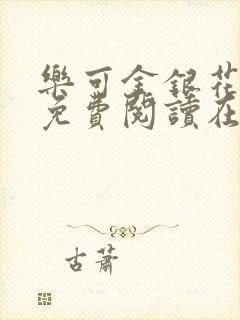 樂可金銀花
免費閱讀在
古蕭